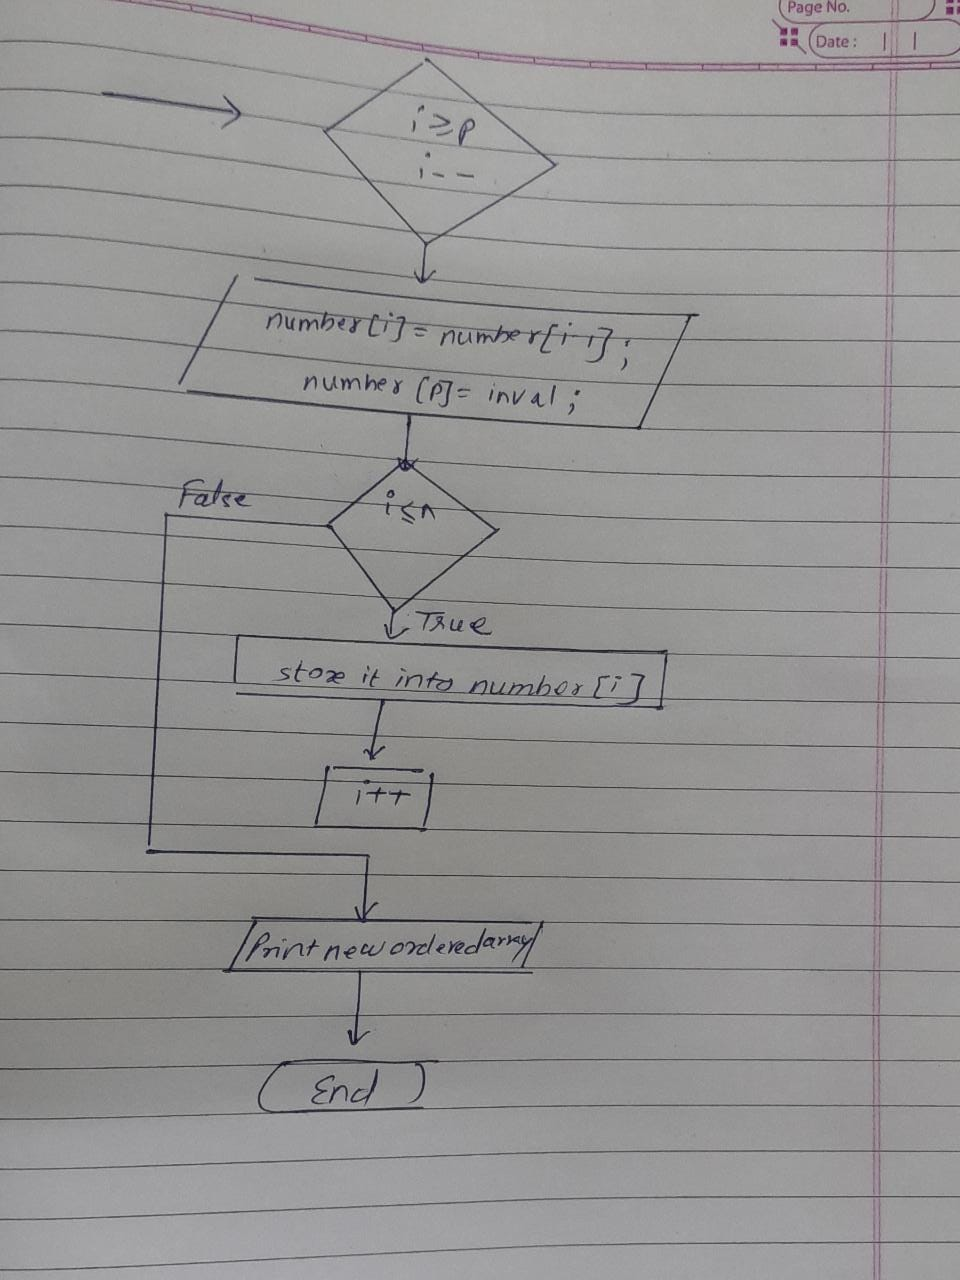 Page No.
Date :
i ≥ p
i - -
number [i] = number[i-1] ;
number [p] = inval ;
False
i ≤ n
True
store it into number [i]
i++
Print new ordered array
End